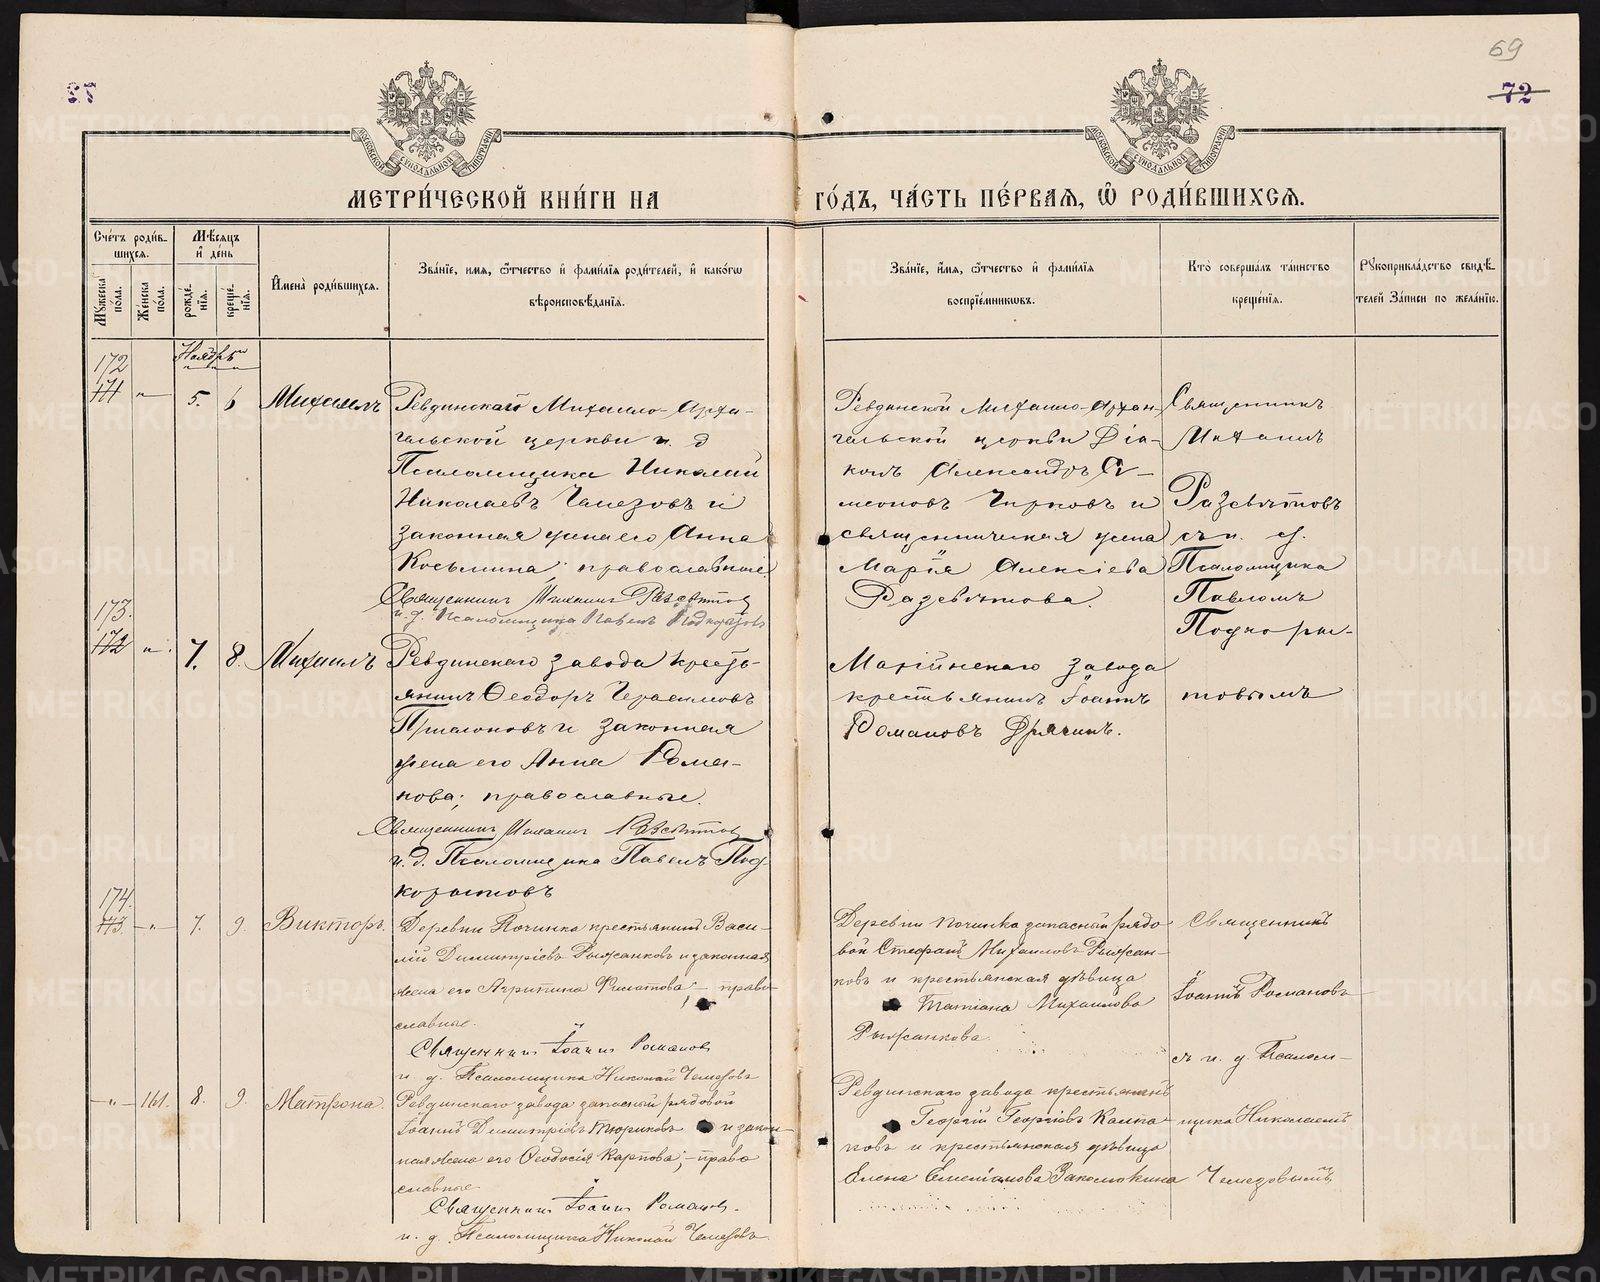 69
72
МЕТРИ́ЧЕСКОЙ КНИ́ГИ НА ГО́ДЪ, ЧА́СТЬ ПЕ́РВАЯ, Ѿ РОДИ́ВШИХСЯ.
МОСКОВСКОЙ СѴНОДАЛЬНОЙ ТИПОГРАФІИ
МОСКОВСКОЙ СѴНОДАЛЬНОЙ ТИПОГРАФІИ
Сче́тъ роди́в-
шихся.
Мꙋжеска по́ла.
Же́нска по́ла.
Мѣ́сяцъ
и҆ де́нь
рожде́-
нїя.
креще́-
нїя.
И҆мена̀ роди́вшихся.
Зва́нїе, имя, ѿтчество и҆ фами́лїя роди́телей, и҆ како́гѡ
вѣроисповѣ́данїя.
Зва́нїе, и҆́мя, ѿтчество и҆ фами́лїя
воспрїе́мникѡвъ.
Кто̀ соверша́лъ та́инство
креще́нїя.
Рꙋкоприкла́дство свидѣ́-
телей За́писи по жела́нїю.
Ноябрь
172
171 " 5. 6 Михаилъ
Ревдинской Михаило-Арха-
гельской церкви и. д
Псаломщика Николай
Николаевъ Чемезовъ и
законная жена его Анна
Косьмина; православные.
Священник Михаил Разсветов
и. д. Псаломщика Павелъ Подкорытов
Ревдинской Михаило-Архан-
гельской церкви Діа-
конъ Александръ Си-
меоновъ Чирковъ и
священническая жена
Марія Алексіева
Разсвѣтова.
Священникъ
Михаилъ
Разсвѣтовъ
съ и. д.
Псаломщика
Павломъ
Подкоры-
товымъ
173.
172 " 7. 8. Михаилъ
Ревдинскаго завода кресть-
янинъ Ѳеодоръ Герасимовъ
и законная
жена его Анна Рома-
нова; православные.
Священник Михаил Разсветов
и. д. Псаломщика Павелъ Под
корытовъ
Маріинскаго завода
крестьянинъ Іоаннъ
Романовъ Дрягинъ.
174.
173 " 7. 9. Викторъ.
Деревни Починка крестьянинъ Васи-
лій Димитріевъ Рыжанковъ и законная
жена его Агрипина Филатова; – право
славные.
Священникъ Іоаннъ Романовъ
и. д. Псаломщика Николай Чемезовъ
Деревни Починка запасный рядо
вой Стефанъ Михаиловъ Рыжан-
ковъ и крестьянская дѣвица
Татіана Михаилова
Рыжанкова.
Священникъ
Іоаннъ Романовъ
съ и. д. Псалом-
щика Николаемъ
Чемезовымъ
" 161. 8. 9. Матрона.
Ревдинскаго завода запасный рядовой
Іоаннъ Димитріевъ Тюриковъ и закон-
ная жена его Ѳеодосія Карпова; – право
славные
Священникъ Іоаннъ Романовъ.
и. д. Псаломщика Николай Чемезовъ.
Ревдинскаго завода крестьянинъ
Георгій Георгіевъ
ковъ и крестьянская дѣвица
Елена Емеліанова